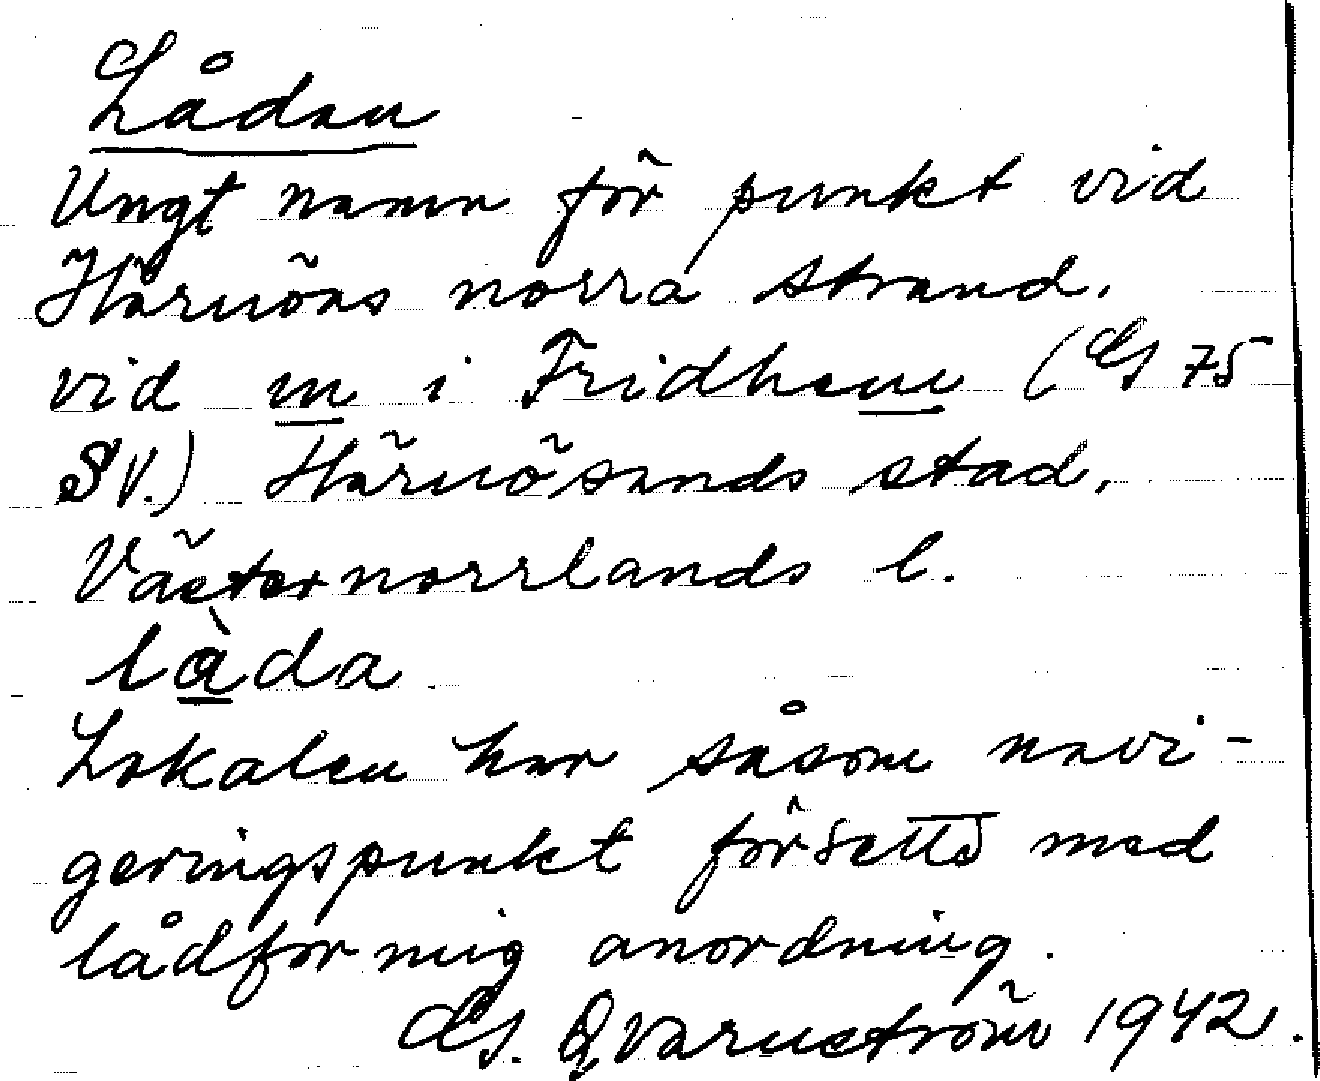 Lådan
Ungt namn för punkt vid
Härnöns norra strand.
vid m i Fridhem (G 75
SV.) Härnösands stad,
Västernorrlands l.
làda
Lokalen har såsom navi-
geringspunkt försetts med
lådformig anordning.
G. Qvarnström 1942.